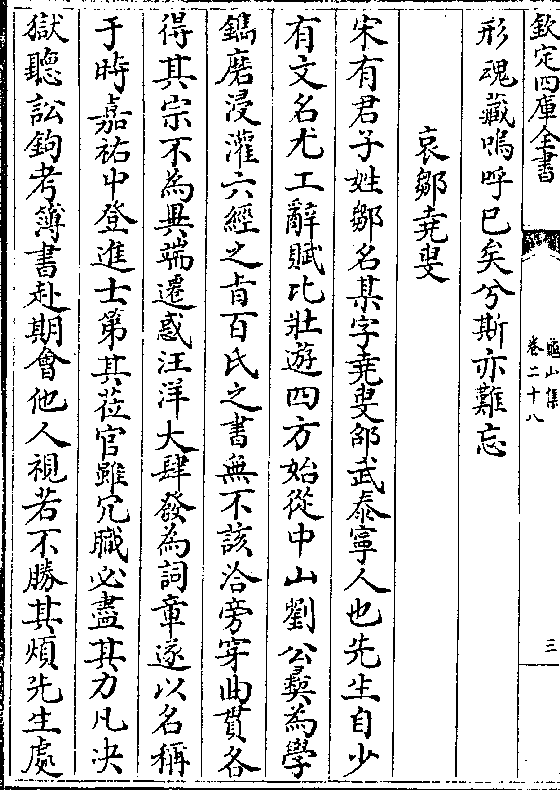 欽定四庫全書
龜山集
卷二十八
三
形魂藏嗚呼已矣兮斯亦難忘
哀鄒堯叟
宋有君子姓鄒名某字堯叟邵武泰寧人也先生自少
有文名尤工辭賦比壯遊四方始從中山劉公彛為學
鐫磨浸灌六經之㫖百氏之書無不該洽旁穿曲貫各
得其宗不為異端遷惑汪洋大肆發為詞章遂以名稱
于時嘉祐中登進士第其莅官雖冗職必盡其力凡决
獄聽訟鉤考簿書赴期會他人視若不勝其煩先生處